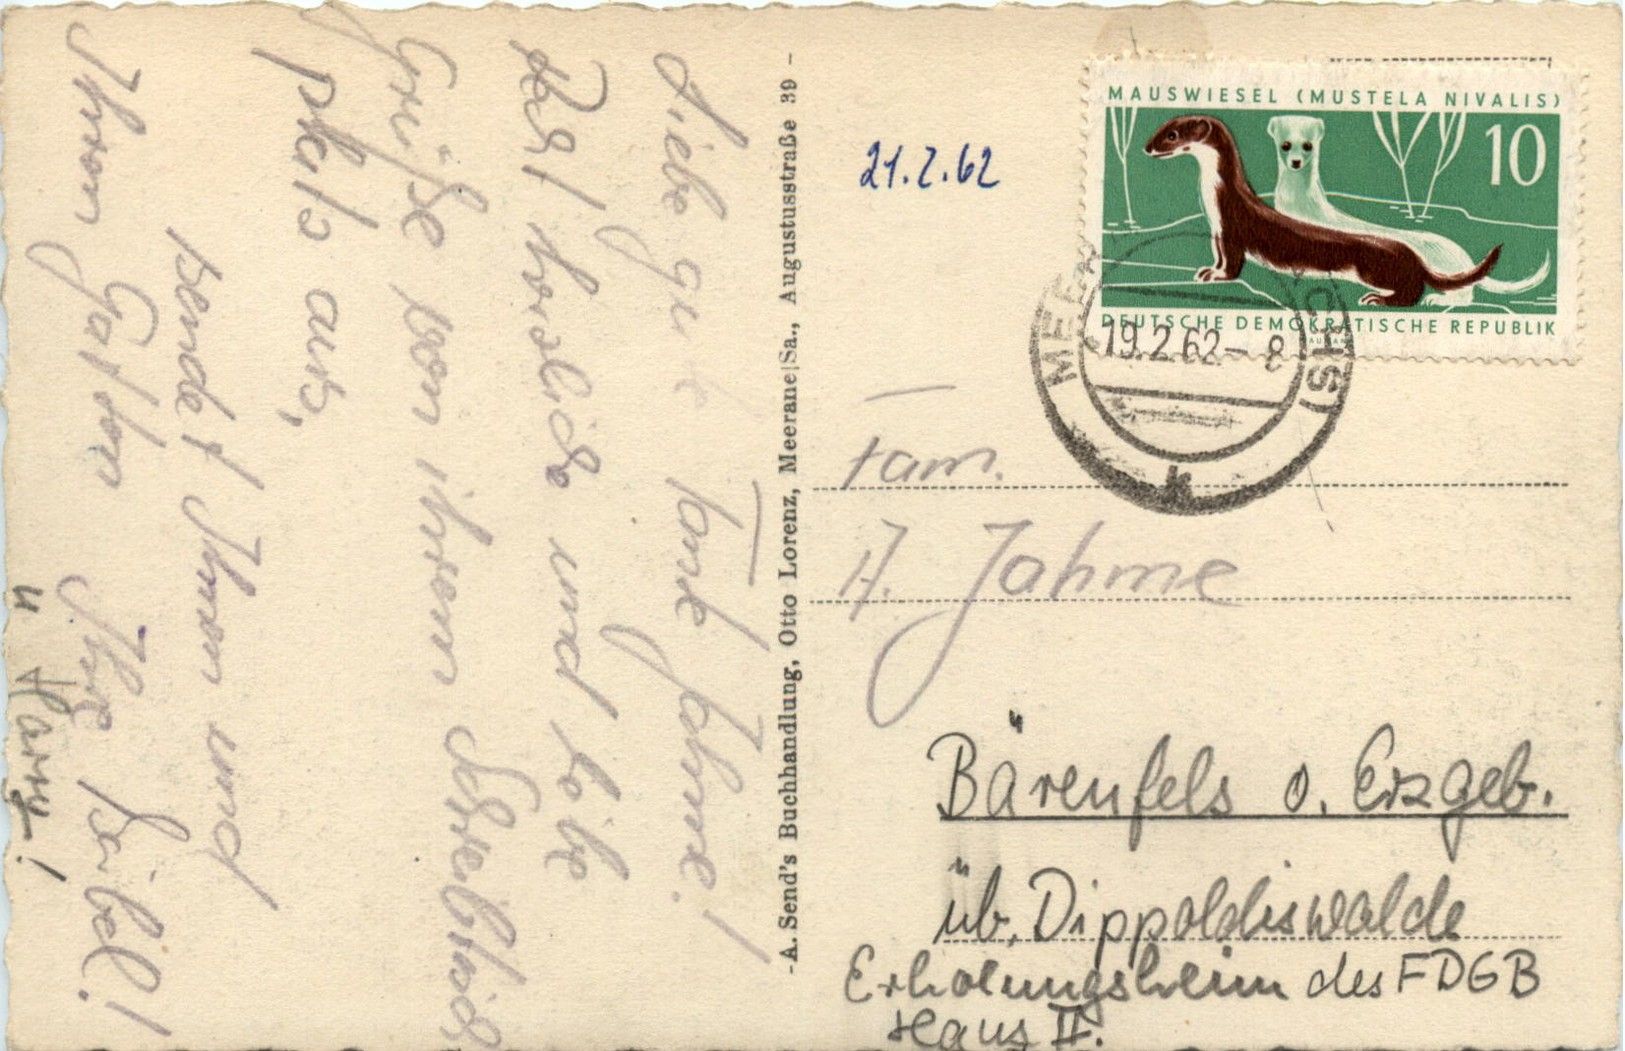 Liebe gute Tante Jahme!
Recht herzliche und liebe
Grüße von ihrem Schreib-
platz aus,
sendet Ihnen und
Ihrem Gatten Ihre Bärbel!
u. Harry!
-A. Send's Buchhandlung, Otto Lorenz, Meerane|Sa., Augustusstraße 39 -
21.2.62
MAUSWIESEL (MUSTELA NIVALIS)
10
DEUTSCHE DEMOKRATISCHE REPUBLIK
MEER
CHS)
19.2.62-8
k
Fam.
A. Jahme
Bärenfels o. Erzgeb.
üb. Dippoldiswalde
Erholungsheim des FDGB
Haus II.